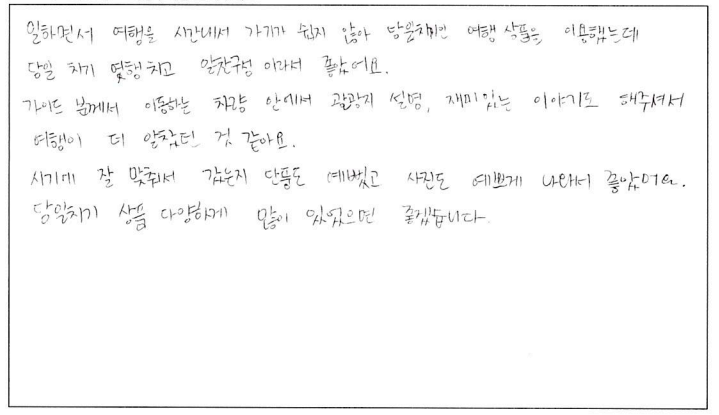 일하면서 여행을 시간내서 가기가 쉽지 않아 당일치기 여행 상품을 이용했는데
당일 치기 여행치고 알찬구성 이라서 좋았어요.
가이드 분께서 이동하는 차량 안에서 관광지 설명, 재미있는 이야기도 해주셔서
여행이 더 알찼던 것 같아요.
시기에 잘 맞춰서 갔는지 단풍도 예뻤고 사진도 예쁘게 나와서 좋았어요.
당일치기 상품 다양하게 많이 있었으면 좋겠습니다.